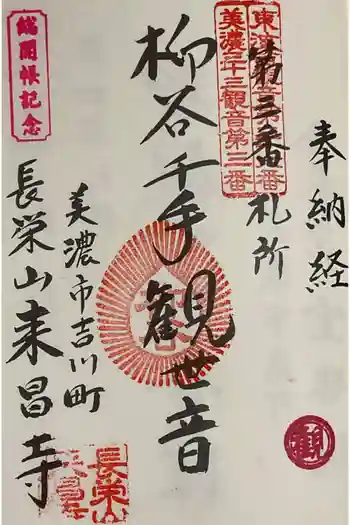 奉納経
第三番札所
美濃三十三観音第三番
柳谷千手観世音
美濃市吉川町
長栄山来昌寺
総開帳記念
長栄山
観